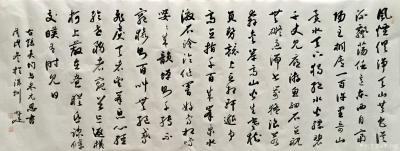 風煙俱净天山共色從
流飄蕩任意東西自富
陽至桐廬一百許里奇山
異水天下獨絕水皆縹碧
千丈見底游魚細石直視
無礙急湍甚箭猛浪若
奔夾岸高山皆生寒樹
負勢競上互相軒邈爭
高直指千百成峰泉水
激石泠泠作響好鳥相鳴
嚶嚶成韻蟬則千轉不
窮猿則百叫無絕
鳶飛戾天者望峰息心經
綸世務者窺谷忘返橫
柯上蔽在晝猶昏疏條
交映有時見日
吳均與朱元思書
戊戌冬於深圳